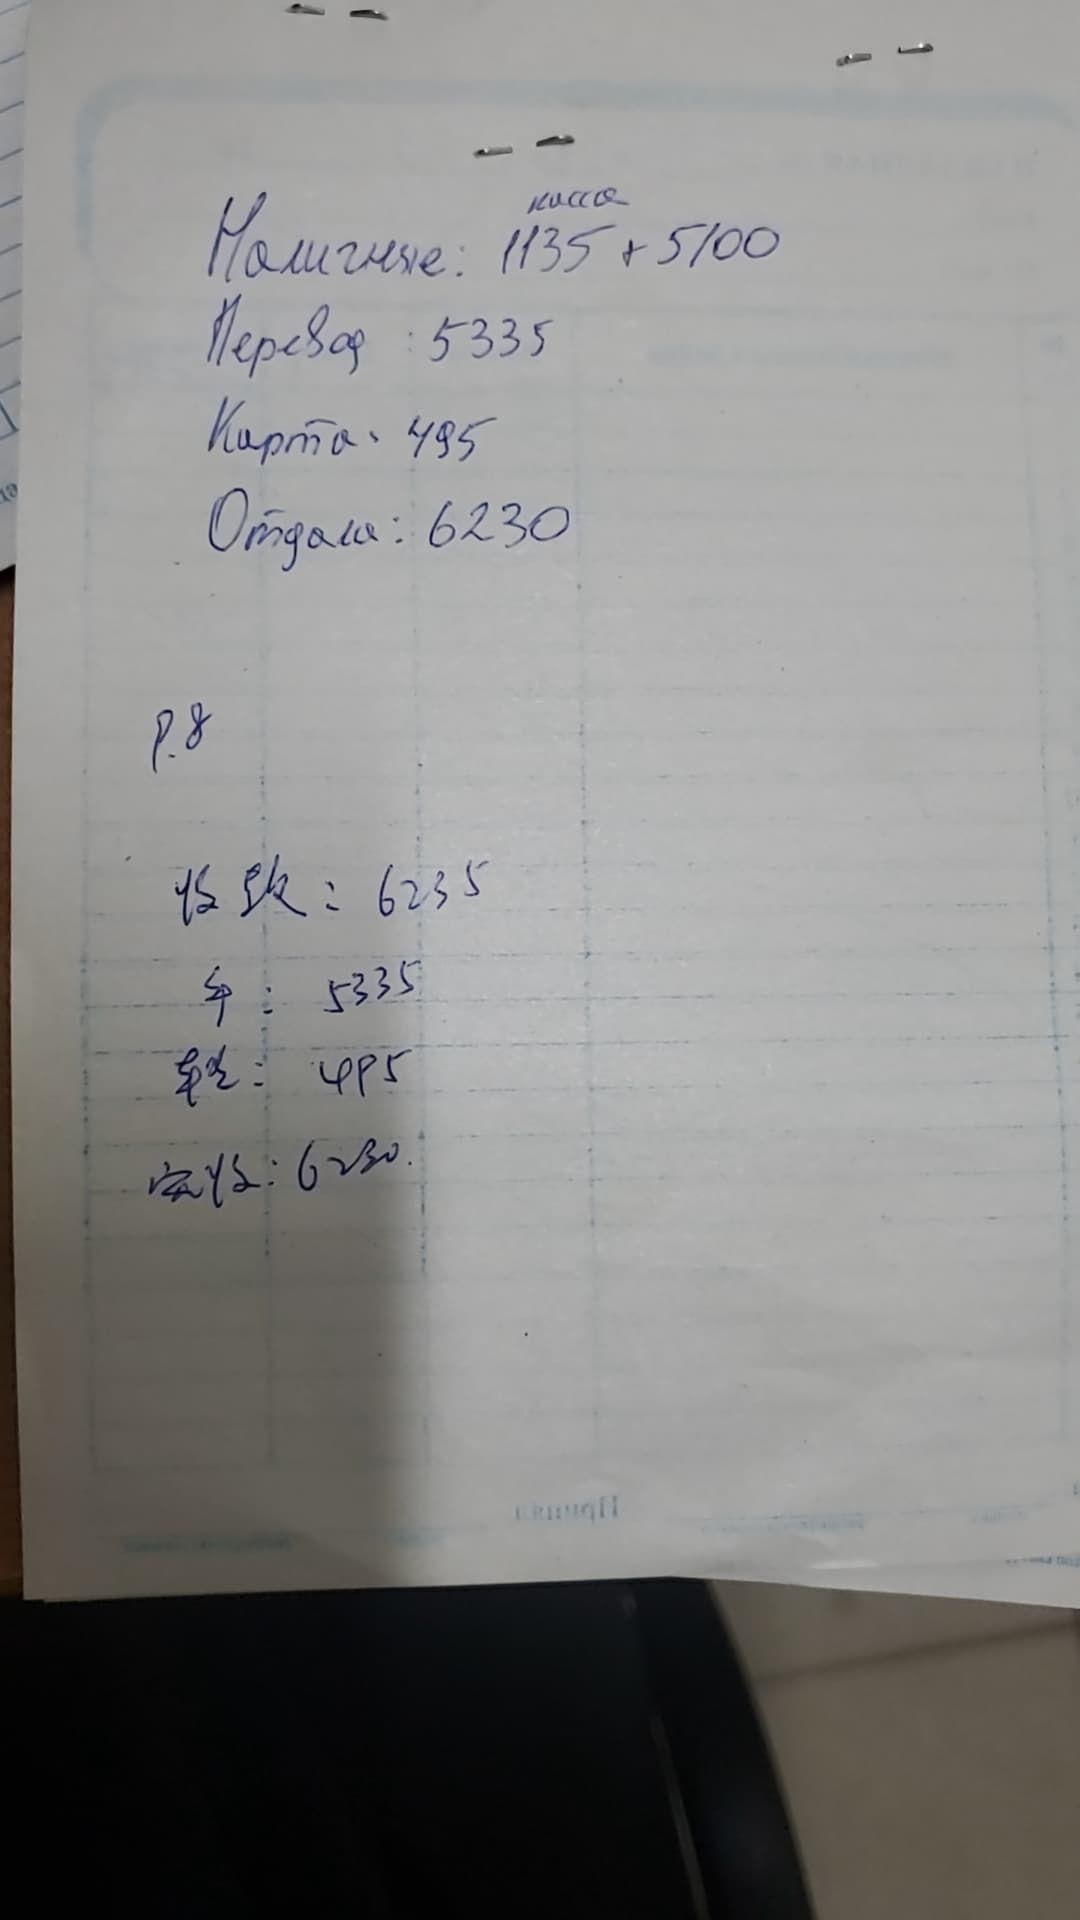 касса
Наличные: 1135 + 5100
Перевод: 5335
Карта: 495
Отдала: 6230
P.8
收款: 6235
卡: 5335
495
实收: 6230.
Принял